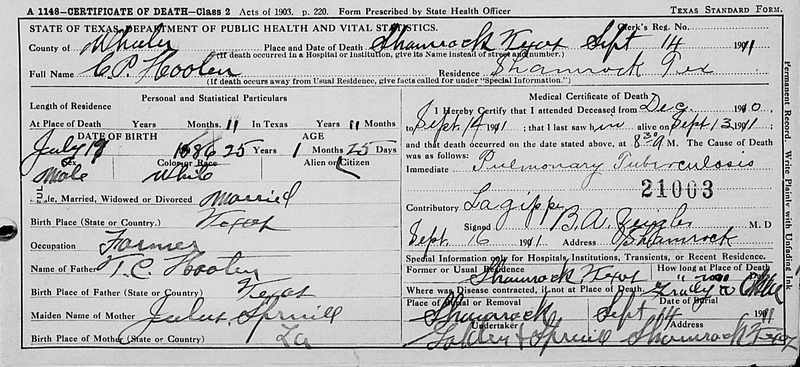 A 1148—CERTIFICATE OF DEATH—Class 2 Acts of 1903. p. 220. Form Prescribed by State Health Officer TEXAS STANDARD FORM.
STATE OF TEXAS, DEPARTMENT OF PUBLIC HEALTH AND VITAL STATISTICS. Clerk's Reg. No.
County of Wheeler Place and Date of Death Shamrock Texas Sept 14 1911
(If death occurred in a Hospital or Institution, give its Name instead of street and number.)
Full Name C.P. Hooten Residence Shamrock Tex
(If death occurs away from Usual Residence, give facts called for under "Special Information.")
Personal and Statistical Particulars
Length of Residence
At Place of Death Years Months. 11 In Texas Years Months. 11
DATE OF BIRTH AGE
July 19 1886 25 Years 1 Months 25 Days
Sex Color or Race Alien or Citizen
Male White
Single, Married, Widowed or Divorced Married
Birth Place (State or Country.) Texas
Occupation Farmer
Name of Father T.C. Hooten
Birth Place of Father (State or Country) Texas
Maiden Name of Mother Spruill
Birth Place of Mother (State or Country) La
Medical Certificate of Death
I Hereby Certify that I attended Deceased from Dec. 1910
to Sept. 14 1911; that I last saw him alive on Sept 13 1911;
and that death occurred on the date stated above, at 8 30 M. The Cause of Death
was as follows:
Immediate Pulmonary Tuberculosis
21003
Contributory Lagippe
Signed B.A. M. D
Sept. 16 1911 Address Shamrock
Special Information only for Hospitals, Institutions, Transients, or Recent Residence.
Former or Usual Residence Shamrock Texas How long at Place of Death
Where was Disease contracted, if not at Place of Death.
Place of Burial or Removal Date of Burial
Shamrock Sept 14 1911
Undertaker Address
Spruill Shamrock Texas
Permanent Record. Write Plainly with Unfading Ink